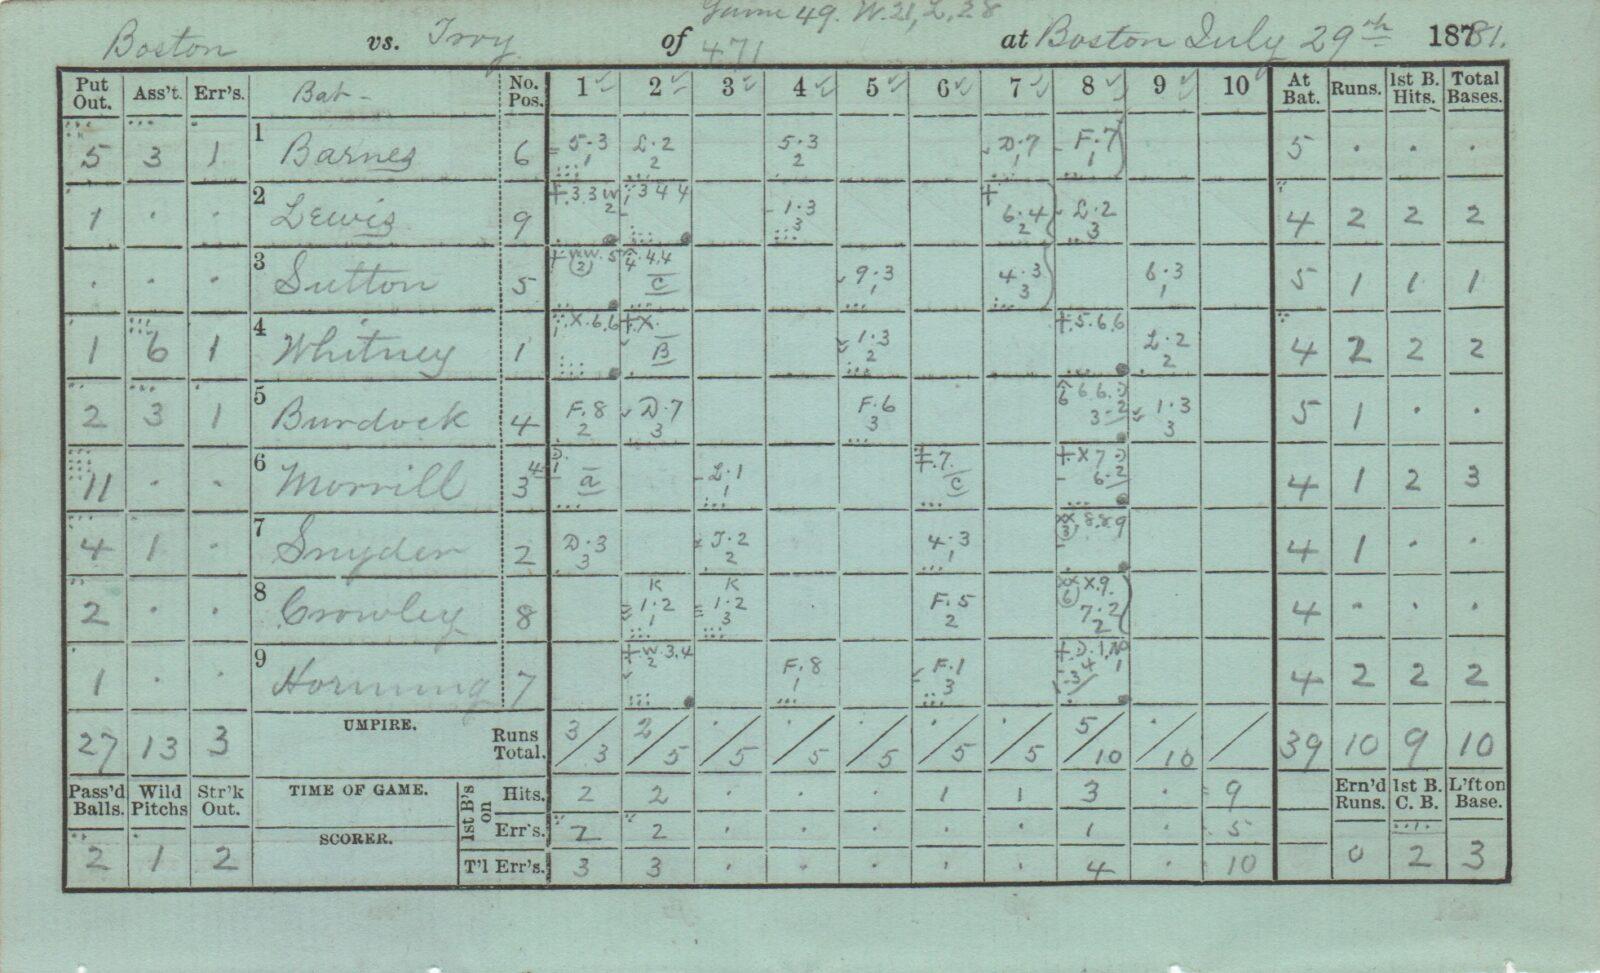 Game 49. W. 21, L, 28
Boston vs. Troy of 471 at Boston July 29th 18781.
Put Out. Ass't. Err's. Bat- No. Pos. 1 2 3 4 5 6 7 8 9 10 At Bat. Runs. 1st B. Hits. Total Bases.
5 3 1 1 Barnes 6 5·3 1 L·2 2 5·3 2 D·7 1 F·7 1 5 · · ·
1 · · 2 Lewis 9 +·3 3 W 2 3 4 4 1·3 3 + 6·4 2 L·2 3 4 2 2 2
· · · 3 Sutton 5 + WW·5 2 4 4·4 C 9·3 1 4·3 3 6·3 1 5 1 1 1
1 6 1 4 Whitney 1 X·6.6 +·X· B 1·3 2 +·5·6.6 L·2 2 4 2 2 2
2 3 1 5 Burdock 4 F·8 2 D·7 3 F·6 3 6 6 6. 3-2 1·3 3 5 1 · ·
11 · · 6 Morrill 3 4 1 a L·1 1 +·7 C +·X 7 6-2 4 1 2 3
4 1 · 7 Snyder 2 D·3 3 J·2 2 4·3 1 XX 3 8.8.9 4 1 · ·
2 · · 8 Crowley 8 K 1·2 1 K 1·2 3 F·5 2 XX 6 X.9. 7·2 2 4 · · ·
1 · · 9 Hornung 7 +·W·3.4 2 F·8 1 F·1 3 +·D·1, 4 1 -3 4 2 2 2
27 13 3 UMPIRE. Runs Total. 3/3 2/5 ·/5 ·/5 ·/5 ·/5 ·/5 5/10 ·/10 / 39 10 9 10
Pass'd Balls. Wild Pitchs Str'k Out. TIME OF GAME. 1st B's on Hits. 2 2 · · · 1 1 3 · 9 Ern'd Runs. 1st B. C. B. L'ft on Base.
SCORER. Err's. 2 2 · · · · · 1 · 5
2 1 2 T'l Err's. 3 3 · · · · · 4 · 10 0 2 3